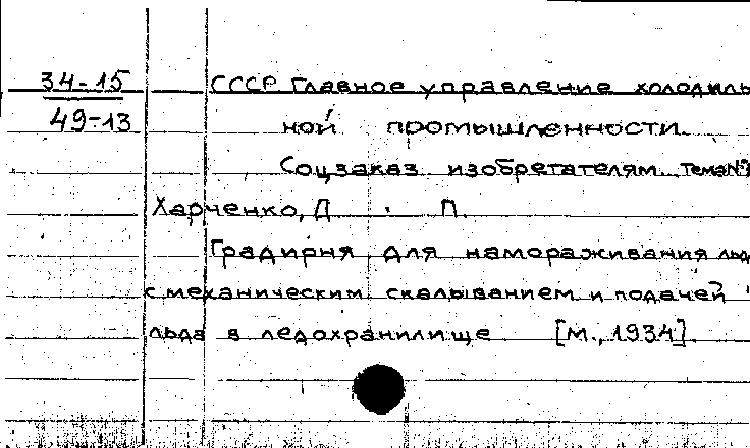 34-15
49-13
СССР Главное управление холодиль
ной промышленности.
Соцзаказ изобретателям. Тема №
Харченко, Д. П.
Градирня для намораживания льда
с механическим скалыванием и подачей
льда в ледохранилище [М., 1934].